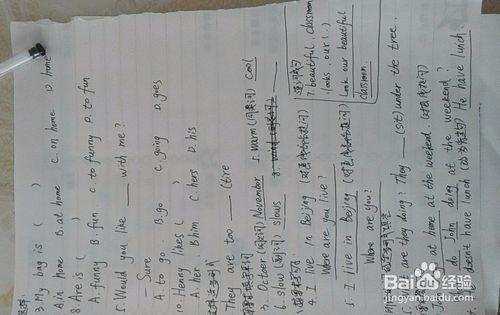 3. My bag is ( )
A. in home B. at home C. on home D. home
8. Are is ( )
A. funny B. fun C. to funny D. to fun
5. Would you like ___ with me?
— Sure
A. to go B. go C. going D. goes
10. Henry likes ( )
A. her B. him C. hers D. his
They are too ___ (tire
3. October (同类词) November 5. warm (同类词) cool
6. slow (副词) slows
4. I live in Beijing (对画线部分提问)
Where are you live?
5. I live in Beijing (对画线部分提问)
Where are you?
连词成句
7. beautiful, classroom
looks, our (.)
Look our beautiful
classroom.
are they doing? They ___ (sit) under the tree.
at home at the weekend (对画线提问)
do John doing at the weekend?
doesn't have lunch He have lunch.
Baidu 百度经验
jingyan.baidu.com